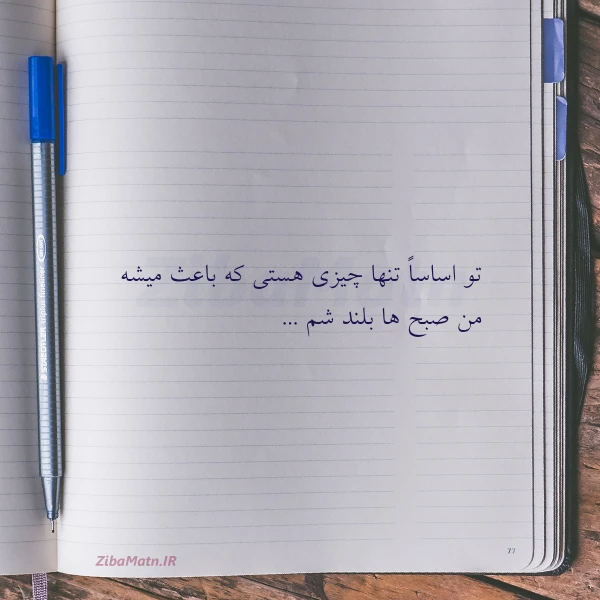 تو اساساً تنها چیزی هستی که باعث میشه
من صبح ها بلند شم ...
77
ZibaMatn.IR